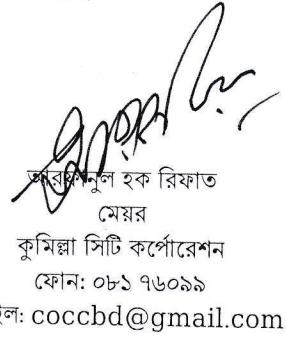 আরফানুল হক রিফাত
মেয়র
কুমিল্লা সিটি কর্পোরেশন
ফোন: ০৮১ ৭৬০৯৯
ইল: coccbd@gmail.com